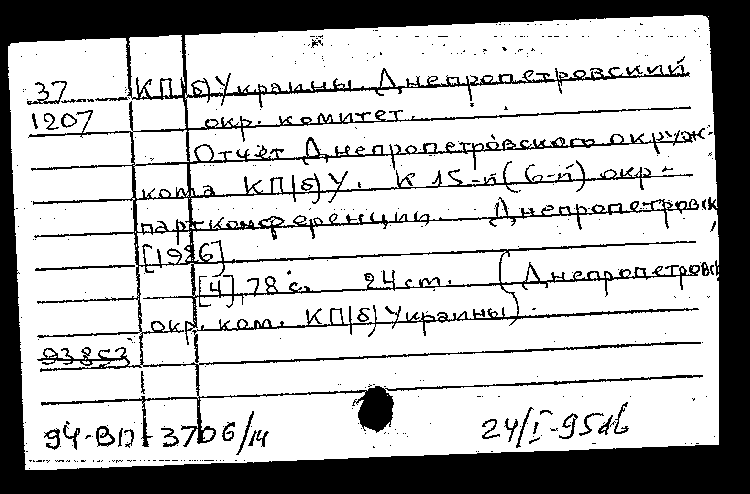 37 КП(б)Украины. Днепропетровский
1207 окр. комитет.
Отчёт Днепропетровского окруж-
кома КП(б)У. К 15-й (6-й) окр-
партконференции. Днепропетровск,
[1926].
[4], 78 с. 24 см. (Днепропетровск
окр. ком. КП(б)Украины).
93853
94-ВП-3706/14 24/I-95